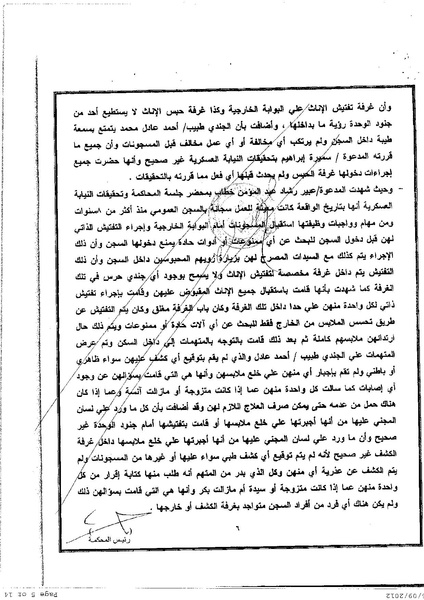 وأن غرفة تفتيش الإناث علي البوابة الخارجية وكذا غرفة حبس الإناث لا يستطيع أحد من
جنود الوحدة رؤية ما بداخلها ، وأضافت بأن الجندي طبيب/ أحمد عادل محمد يتمتع بسمعة
طيبة داخل السجن ولم يرتكب أي مخالفة أو أي عمل مخالف قبل المسجونات وأن جميع ما
قررته المدعوة / سميرة إبراهيم بتحقيقات النيابة العسكرية غير صحيح وأنها حضرت جميع
إجراءات دخولها غرفة الحبس ولم يحدث قبلها أي فعل مما قررته بالتحقيقات .
وحيث شهدت المدعوة/عبير رشاد عبد المؤمن خطاب بمحضر جلسة المحاكمة وتحقيقات النيابة
العسكرية أنها بتاريخ الواقعة كانت معينة للعمل سجانة بالسجن العمومي منذ أكثر من سنوات
ومن مهام وواجبات وظيفتها استقبال المسجونات أمام البوابة الخارجية وإجراء التفتيش الذاتي
لهن قبل دخول السجن للبحث عن أي ممنوعات أو أدوات حادة يمنع دخولها السجن وأن ذلك
الإجراء يتم كذلك مع السيدات المصرح لهن بزيارة ذويهم المحبوسين داخل السجن وأن ذلك
التفتيش يتم داخل غرفة مخصصة لتفتيش الإناث ولا يسمح بوجود أي جندي حرس في تلك
الغرفة كما شهدت بأنها قامت باستقبال جميع الإناث المقبوض عليهن وقامت بإجراء تفتيش
ذاتي لكل واحدة منهن علي حدا داخل تلك الغرفة وكان باب الغرفة مغلق وكان يتم التفتيش عن
طريق تحسس الملابس من الخارج فقط للبحث عن أي آلات حادة أو ممنوعات ويتم ذلك حال
ارتدائهن ملابسهم كاملة ثم بعد ذلك قامت بالتوجه بالمتهمات إلي داخل السجن وتم عرض
المتهمات علي الجندي طبيب / أحمد عادل والذي لم يقم بتوقيع أي كشف عليهن سواء ظاهري
أو باطني ولم تقم بإجبار أي منهن علي خلع ملابسهن وأنها هي التي قامت بسؤالهن عن وجود
أي إصابات كما سألت كل واحدة منهن عما إذا كانت متزوجة أو مازالت آنسة وعما إذا كان
هناك حمل من عدمه حتى يمكن صرف العلاج اللازم لهن وقد أضافت بأن كل ما ورد علي لسان
المجني عليها من أنها أجبرتها علي خلع ملابسها أو قامت بتفتيشها أمام جنود الوحدة غير
صحيح وأن ما ورد علي لسان المجني عليها من أنها أجبرتها علي خلع ملابسها داخل غرفة
الكشف غير صحيح لأنه لم يتم توقيع أي كشف طبي سواء عليها أو غيرها من المسجونات ولم
يتم الكشف عن عذرية أي منهن وكل الذي بدر من المتهم أنه طلب منها كتابة إقرار من كل
واحدة منهن عما إذا كانت متزوجة أو سيدة أم مازالت بكر وأنها هي التي قامت بسؤالهن ذلك
ولم يكن هناك أي فرد من أفراد السجن متواجد بغرفة الكشف أو خارجها .
٦
رئيس المحكمة
Page 5 of 14
/09/2012